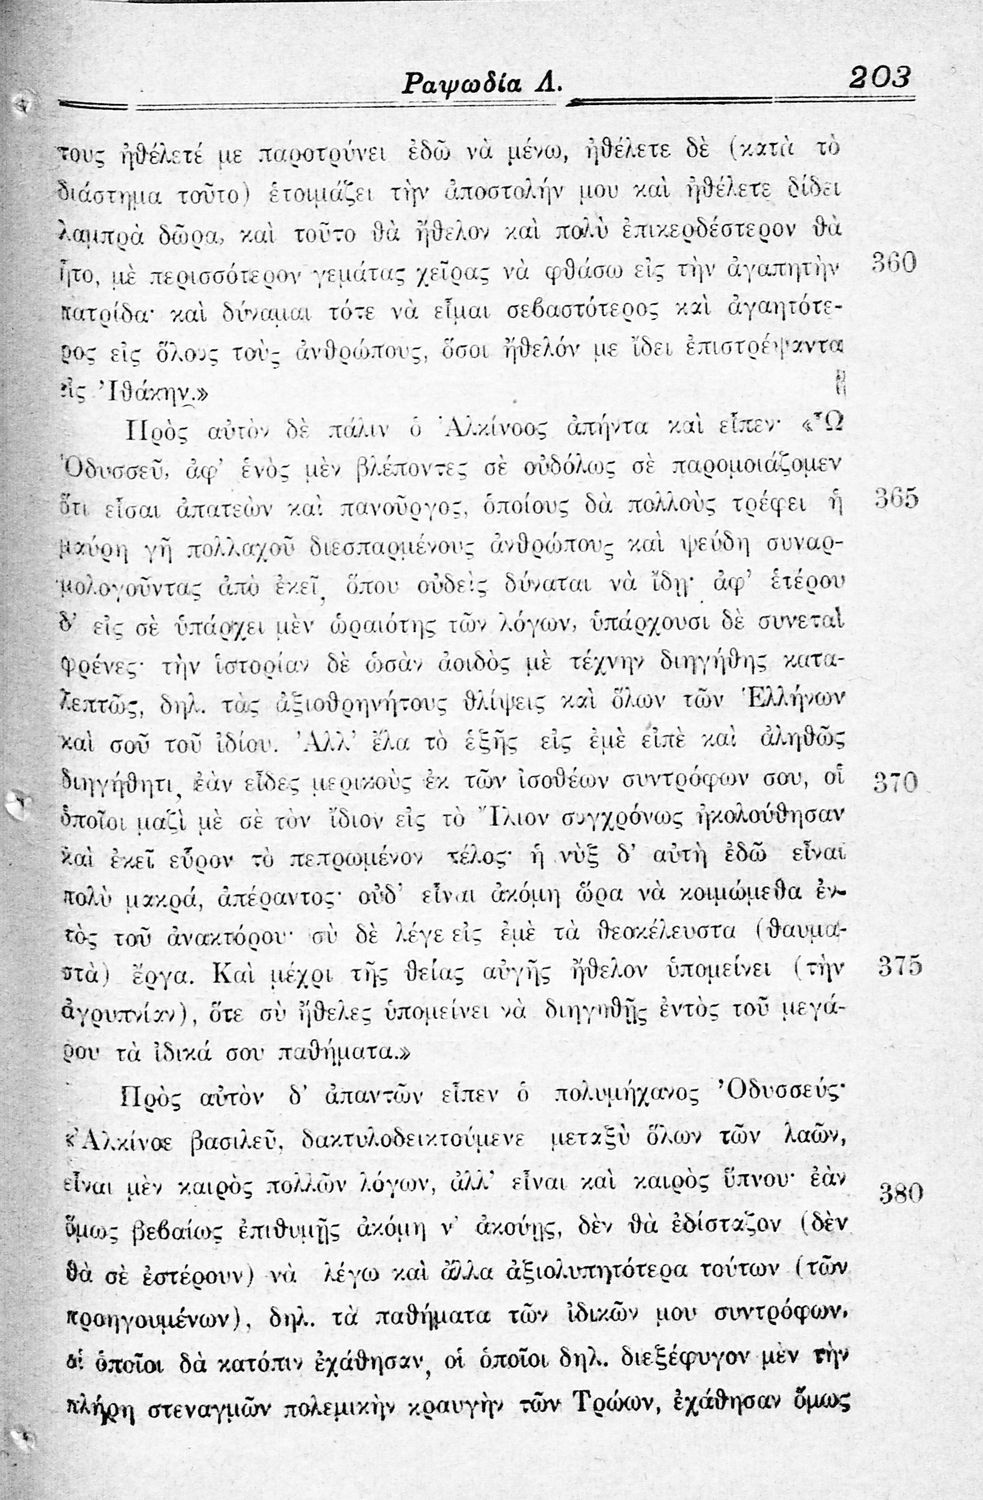 Ραψωδία Λ. 203
τους ἠθέλετέ με παροτρύνει ἐδῶ νὰ μένω, ἠθέλετε δὲ (κατὰ τὸ
διάστημα τοῦτο) ἑτοιμάζει τὴν ἀποστολήν μου καὶ ἠθέλετε δίδει
λαμπρὰ δῶρα, καὶ τοῦτο θὰ ἤθελον καὶ πολὺ ἐπικερδέστερον θὰ
ἦτο, μὲ περισσότερον γεμάτας χεῖρας νὰ φθάσω εἰς τὴν ἀγαπητὴν 360
πατρίδα· καὶ δύναμαι τότε νὰ εἶμαι σεβαστότερος καὶ ἀγαητότε-
ρος εἰς ὅλους τοὺς ἀνθρώπους, ὅσοι ἤθελόν με ἴδει ἐπιστρέψαντα
εἰς Ἰθάκην.»
Πρὸς αὐτὸν δὲ πάλιν ὁ Ἀλκίνοος ἀπήντα καὶ εἶπεν· «Ὦ
Ὀδυσσεῦ, ἀφ' ἑνὸς μὲν βλέποντες σὲ οὐδόλως σὲ παρομοιάζομεν
ὅτι εἶσαι ἀπατεὼν καὶ πανοῦργος, ὁποίους δὰ πολλοὺς τρέφει ἡ 365
μαύρη γῆ πολλαχοῦ διεσπαρμένους ἀνθρώπους καὶ ψεύδη συναρ-
μολογοῦντας ἀπὸ ἐκεῖ, ὅπου οὐδεὶς δύναται νὰ ἴδῃ· ἀφ' ἑτέρου
δ' εἰς σὲ ὑπάρχει μὲν ὡραιότης τῶν λόγων, ὑπάρχουσι δὲ συνεταὶ
φρένες· τὴν ἱστορίαν δὲ ὡσὰν ἀοιδὸς μὲ τέχνην διηγήθης κατα-
λεπτῶς, δηλ. τὰς ἀξιοθρηνήτους θλίψεις καὶ ὅλων τῶν Ἑλλήνων
καὶ σοῦ τοῦ ἰδίου. Ἀλλ' ἔλα τὸ ἑξῆς εἰς ἐμὲ εἰπὲ καὶ ἀληθῶς
διηγήθητι, ἐὰν εἶδες μερικοὺς ἐκ τῶν ἰσοθέων συντρόφων σου, οἳ 370
ὁποῖοι μαζὶ μὲ σὲ τὸν ἴδιον εἰς τὸ Ἴλιον συγχρόνως ἠκολούθησαν
καὶ ἐκεῖ εὗρον τὸ πεπρωμένον τέλος· ἡ νὺξ δ' αὐτὴ ἐδῶ εἶναι
πολὺ μακρά, ἀπέραντος· οὐδ' εἶναι ἀκόμη ὥρα νὰ κοιμώμεθα ἐν-
τὸς τοῦ ἀνακτόρου· σὺ δὲ λέγε εἰς ἐμὲ τὰ θεοκέλευστα (θαυμα-
στὰ) ἔργα. Καὶ μέχρι τῆς θείας αὐγῆς ἤθελον ὑπομείνει (τὴν 375
ἀγρυπνίαν), ὅτε σὺ ἤθελες ὑπομείνει νὰ διηγηθῇς ἐντὸς τοῦ μεγά-
ρου τὰ ἰδικά σου παθήματα.»
Πρὸς αὐτὸν δ' ἀπαντῶν εἶπεν ὁ πολυμήχανος Ὀδυσσεύς·
«Ἀλκίνοε βασιλεῦ, δακτυλοδεικτούμενε μεταξὺ ὅλων τῶν λαῶν,
εἶναι μὲν καιρὸς πολλῶν λόγων, ἀλλ' εἶναι καὶ καιρὸς ὕπνου· ἐὰν 380
ὅμως βεβαίως ἐπιθυμῇς ἀκόμη ν' ἀκούῃς, δὲν θὰ ἐδίσταζον (δὲν
θὰ σὲ ἐστέρουν) νὰ λέγω καὶ ἄλλα ἀξιολυπητότερα τούτων (τῶν
προηγουμένων), δηλ. τὰ παθήματα τῶν ἰδικῶν μου συντρόφων,
οἱ ὁποῖοι δὰ κατόπιν ἐχάθησαν, οἱ ὁποῖοι δηλ. διεξέφυγον μὲν τὴν
πλήρη στεναγμῶν πολεμικὴν κραυγὴν τῶν Τρώων, ἐχάθησαν ὅμως